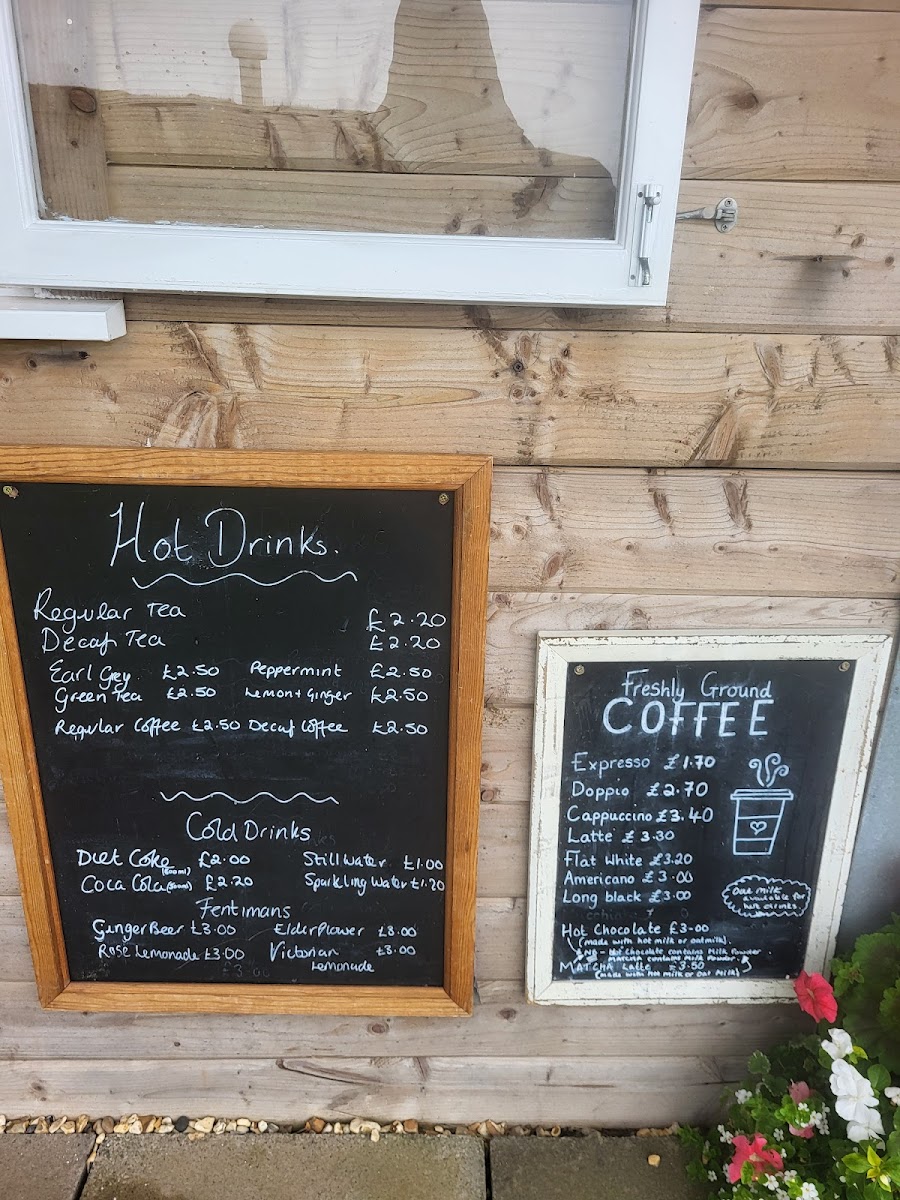 Hot Drinks.
Regular Tea £2.20
Decaf Tea £2.20
Earl Gey £2.50 Peppermint £2.50
Green Tea £2.50 Lemon + Ginger £2.50
Regular Coffee £2.50 Decaf Coffee £2.50
Cold Drinks
Diet Coke (500ml) £2.00 Still water £1.00
Coca Cola (500ml) £2.20 Sparkling Water £1.20
Fentimans
Ginger Beer £3.00 Elderflower £3.00
Rose Lemonade £3.00 Victorian £3.00
Lemonade
£3.00
Freshly Ground
COFFEE
Expresso £1.70
Doppio £2.70
Cappuccino £3.40
Latte £3.30
Flat White £3.20
Americano £3.00
Long black £3.00
Oat milk
available for
hot drinks.
Hot Chocolate £3.00
(made with hot milk or oatmilk).
NB - Hot Chocolate contains Milk Powder
MATCHA contains Milk Powder.
MATCHA Latte £3.50
(made with hot milk or Oat Milk)